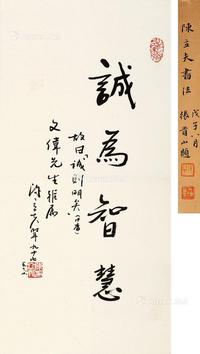 誠為智慧
故曰誠則明矣
文偉先生雅屬
陳立夫
陳立夫書法
戊子八月
張首山題